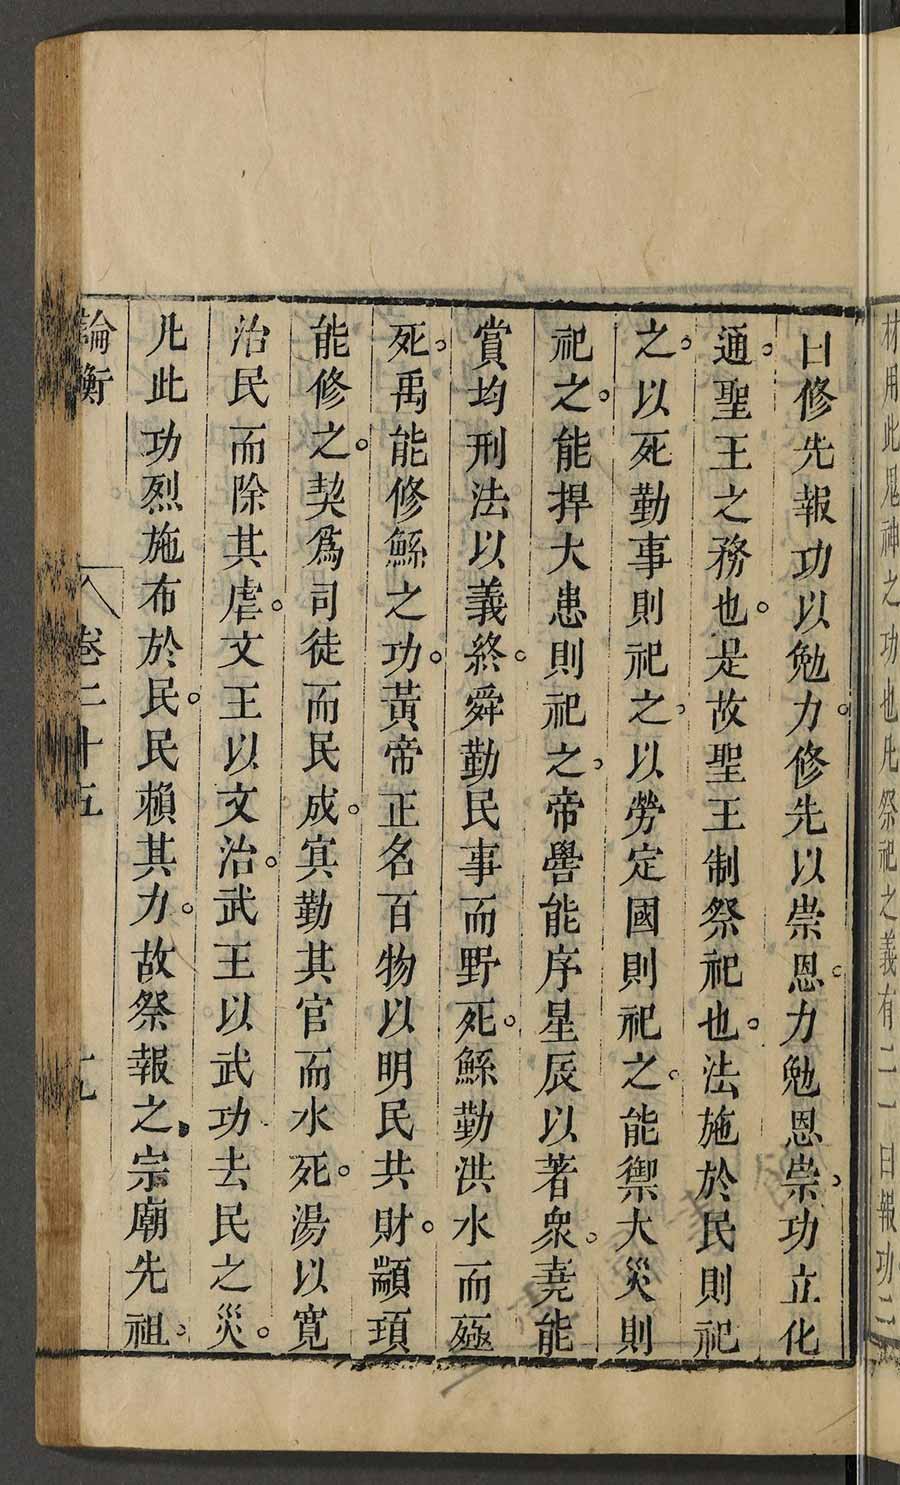 材用此鬼神之功也凡祭祀之義有二一曰報功二
曰修先報功以勉力。修先以崇恩。力勉恩崇。功立化
通。聖王之務也。是故聖王制祭祀也。法施於民則祀
之。以死勤事則祀之、以勞定國則祀之。能禦大災則
祀之。能捍大患則祀之、帝嚳能序星辰以著衆。堯能
賞均刑法以義終。舜勤民事而野死。鯀勤洪水而殛
死。禹能修鯀之功。黃帝正名百物以明民共財。顓頊
能修之。契爲司徒而民成。冥勤其官而水死。湯以寬
治民而除其虐。文王以文治。武王以武功去民之災。
凡此功烈施布於民。民賴其力。故祭報之、宗廟先祖。
論衡 卷二十五 九